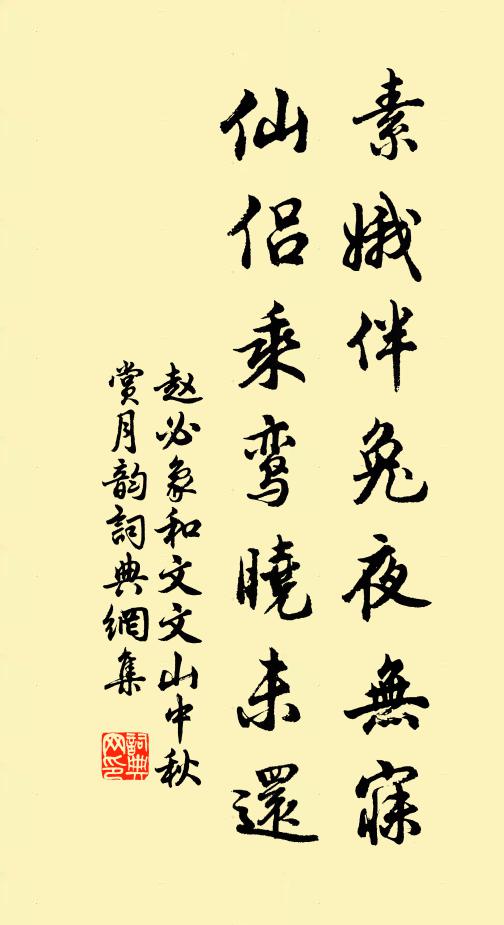 素娥伴兔夜無寐
仙侶乘鸾曉未還
赵必象和文文山中秋
赏月韵詞典網集
詞典
网印